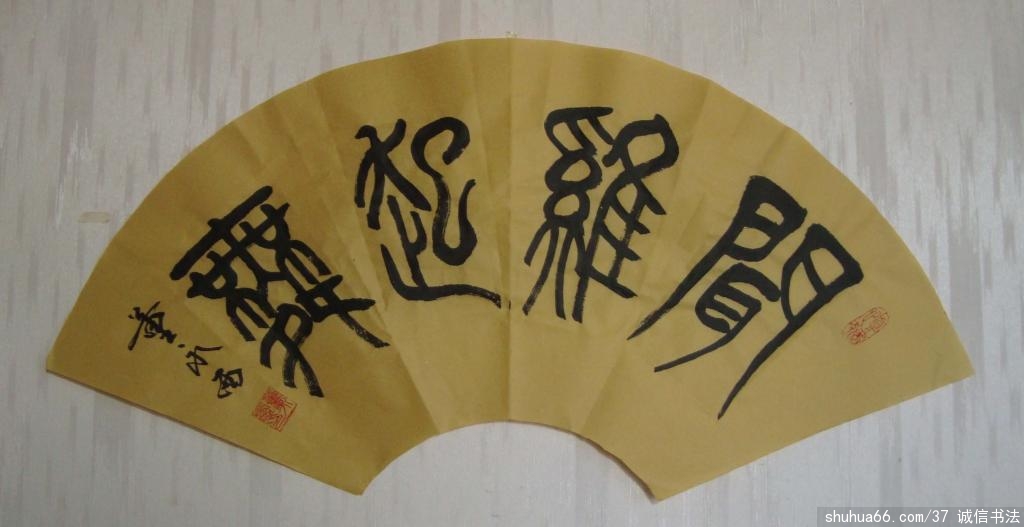 聞雞起舞
shuhua66.com/37 诚信书法